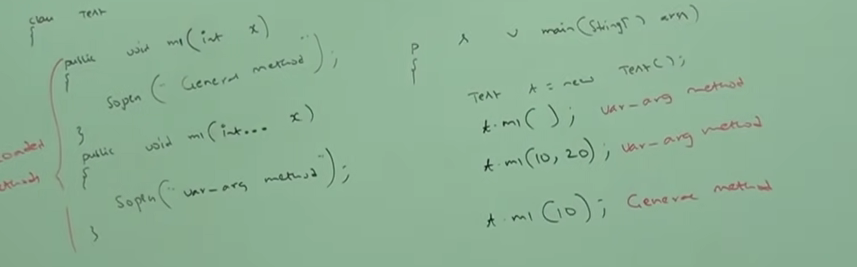 class Test
{
public void m1(int x)
{
Sopln("General method");
}
public void m1(int... x)
{
Sopln("var-arg method");
}
loaded
methods
P s v main(String[] args)
{
Test t = new Test();
t.m1(); var-arg method
t.m1(10, 20); var-arg method
t.m1(10); General method